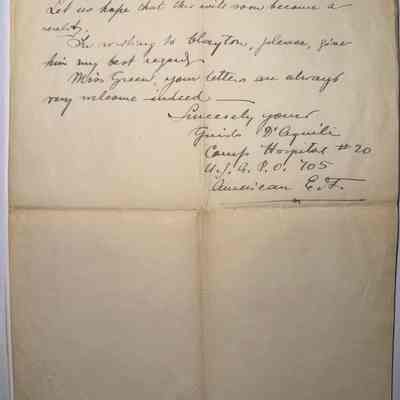 Let us hope that this will soon become a
reality.
In writing to Clayton, please, give
him my best regards
Miss Green, your letters are always
very welcome indeed —
Sincerely yours
Guido D'Aquila
Camp Hospital #20
U.S. A. P.O. 705
American E.F.